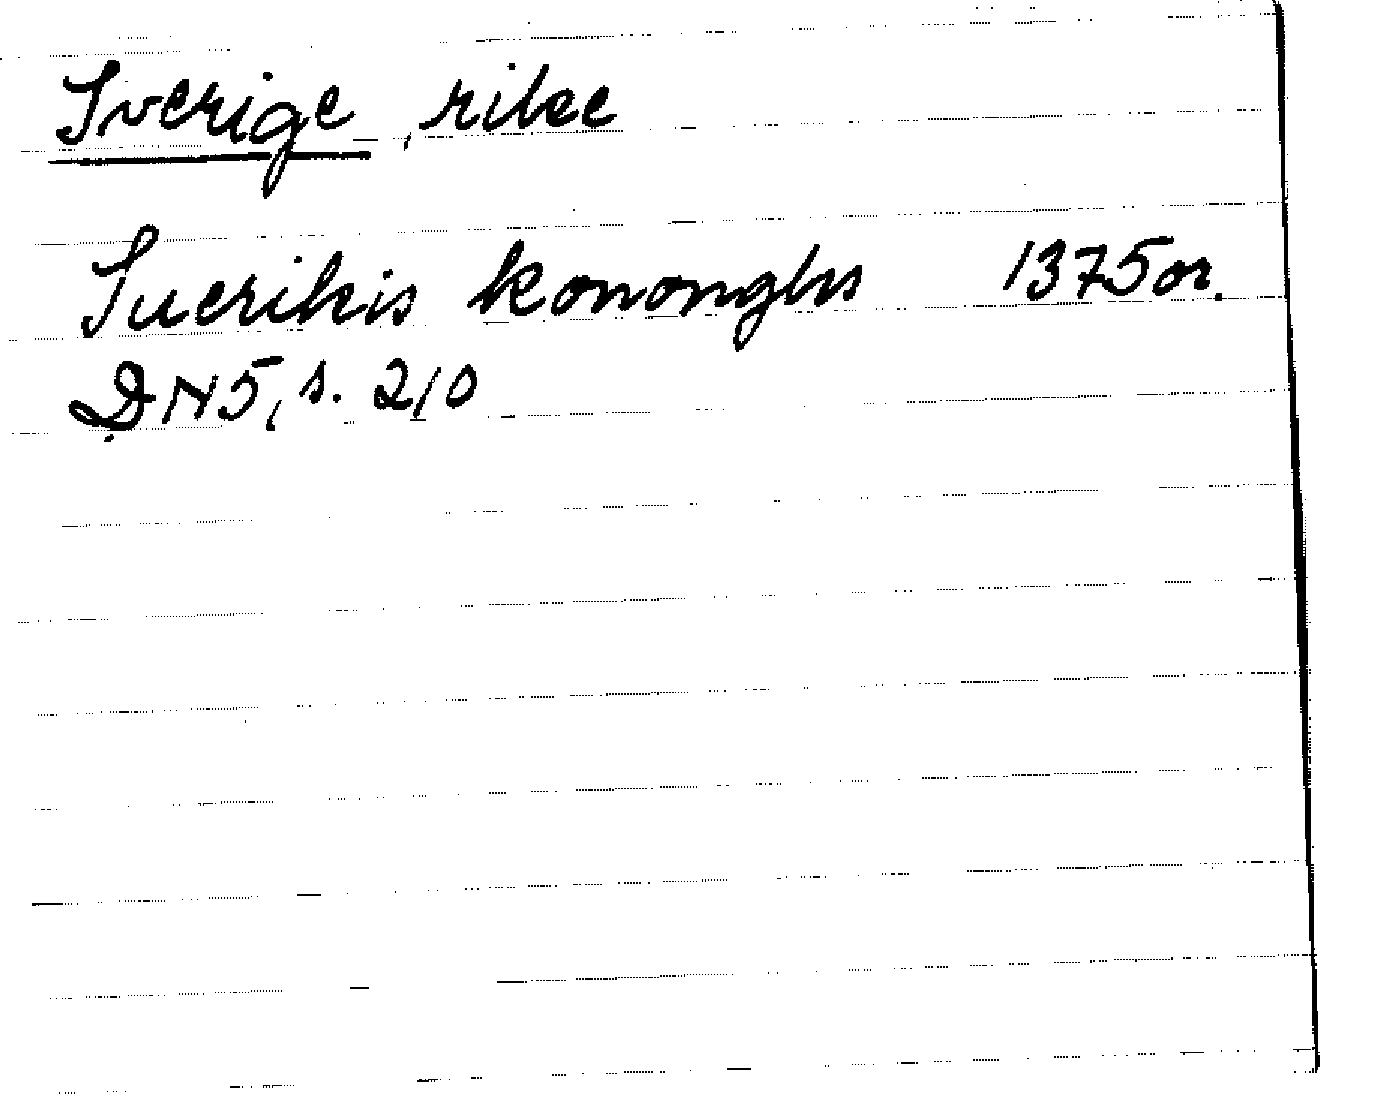 Sverige, rike
Suerikis kononghs 1375 or.
DN5, s. 210